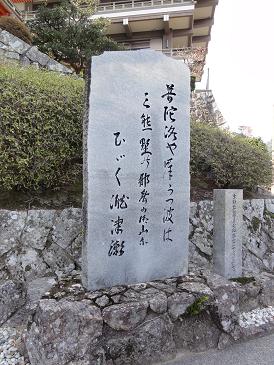 普陀洛や岸うつ波は
三熊野の那智の御山に
ひゞく瀧津瀬